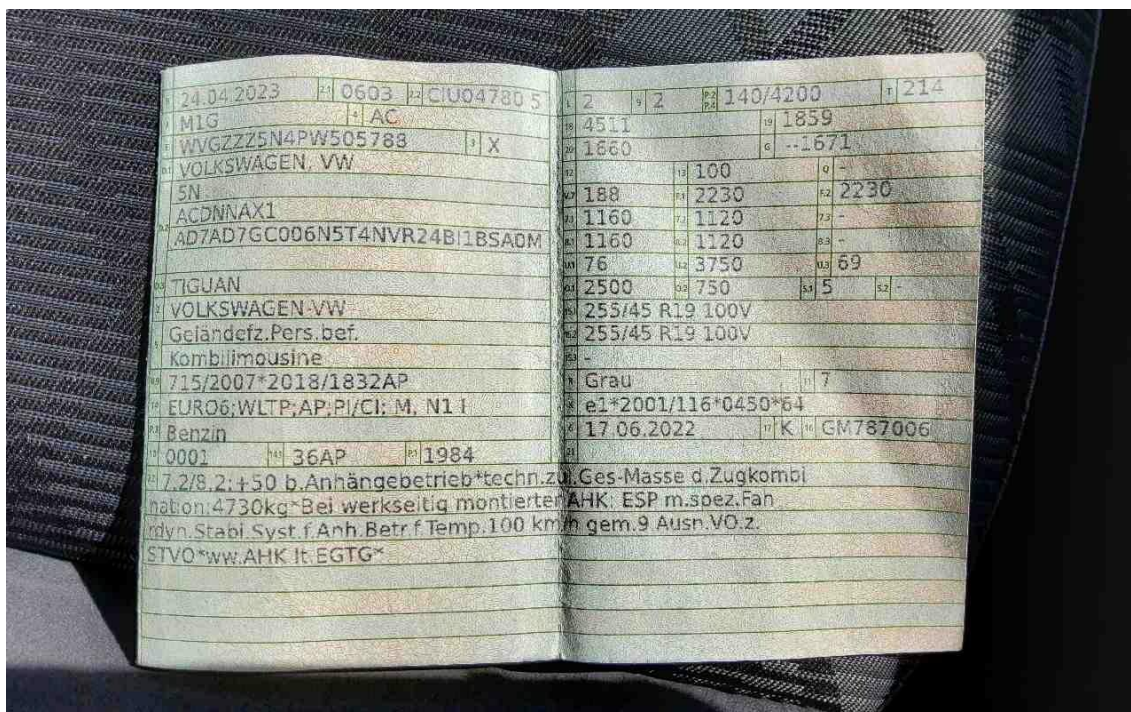 B 24.04.2023 2.1 0603 2.2 CIU04780 5
J M1G 4 AC
E WVGZZZ5N4PW505788 3 X
D.1 VOLKSWAGEN, VW
5N
D.2 ACDNNAX1
AD7AD7GC006N5T4NVR24BI1BSA0M
D.3 TIGUAN
2 VOLKSWAGEN-VW
5 Geländefz.Pers.bef.
Kombilimousine
V.9 715/2007*2018/1832AP
14 EURO6;WLTP;AP;PI/CI; M, N1 I
P.3 Benzin
10 0001 14.1 36AP P.1 1984
L 2 9 2 P.2 P.4 140/4200 T 214
18 4511 19 1859
20 1660 G --1671
12 13 100 Q -
V.7 188 F.1 2230 F.2 2230
7.1 1160 7.2 1120 7.3 -
8.1 1160 8.2 1120 8.3 -
U.1 76 U.2 3750 U.3 69
O.1 2500 O.2 750 S.1 5 S.2 -
15.1 255/45 R19 100V
15.2 255/45 R19 100V
15.3 -
R Grau 11 7
K e1*2001/116*0450*64
6 17.06.2022 17 K 16 GM787006
21
22 7.2/8.2:+50 b.Anhängebetrieb*techn.zul.Ges-Masse d.Zugkombi
nation:4730kg*Bei werkseitig montierter AHK: ESP m.spez.Fah
rdyn.Stabi.Syst.f.Anh.Betr.f.Temp.100 km/h gem.9 Ausn.VO.z.
STVO*ww.AHK lt.EGTG*